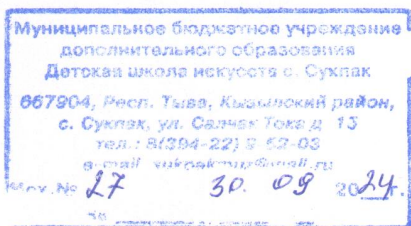 Муниципальное бюджетное учреждение
дополнительного образования
Детская школа искусств с. Сукпак
667904, Респ. Тыва, Кызылский район,
с. Сукпак, ул. Салчак Тока д. 15
тел.: 8(394-22) 9-52-03
e-mail
Исх. № 27 30. 09 2024 г.
На